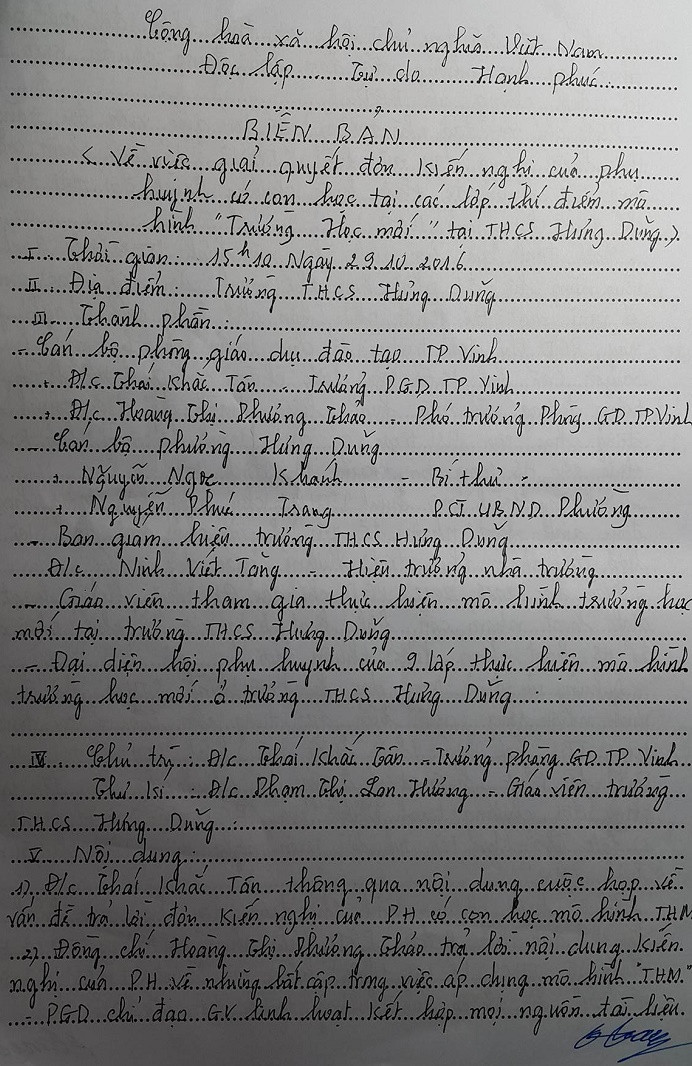 Cộng hoà xã hội chủ nghĩa Việt Nam
Độc lập Tự do Hạnh phúc
BIÊN BẢN
< Về việc giải quyết đơn kiến nghị của phụ
huynh có con học tại các lớp thí điểm mô
hình "Trường Học mới" tại THCS Hưng Dũng >
I. Thời gian: 15h10 Ngày 29.10.2016
II. Địa điểm: Trường THCS Hưng Dũng
III. Thành phần:
- Cán bộ phòng giáo dụ đào tạo TP Vinh
+ Đ/c Thái Khắc Tân - Trưởng P.GD TP Vinh
+ Đ/c Hoàng Thị Phương Thảo - Phó trưởng Phòng GD TP Vinh
- Cán bộ phường Hưng Dũng
+ Nguyễn Ngọc Khánh - Bí thư -
+ Nguyễn Phú Trang P.CT UBND Phường
- Ban giám hiệu trường THCS Hưng Dũng
Đ/c Ninh Viết Tăng - Hiệu trưởng nhà trường
- Giáo viên tham gia thực hiện mô hình trường học
mới tại trường THCS Hưng Dũng
- Đại diện hội phụ huynh của 9 lớp thực hiện mô hình
trường học mới ở trường THCS Hưng Dũng:
IV. Chủ trì: Đ/c Thái Khắc Tân - Trưởng phòng GD TP Vinh
Thư kí: Đ/c Phạm Thị Lan Hương - Giáo viên trường
THCS Hưng Dũng:
V. Nội dung:
1) Đ/c Thái Khắc Tân thông qua nội dung cuộc họp về
vấn đề trả lời đơn kiến nghị của P.H có con học mô hình THM
2) Đồng chí Hoàng Thị Phương Thảo trả lời nội dung kiến
nghị của P.H về những bất cập trong việc áp dụng mô hình "THM"
- P.G.D chỉ đạo G.V linh hoạt kết hợp mọi nguồn tài liệu